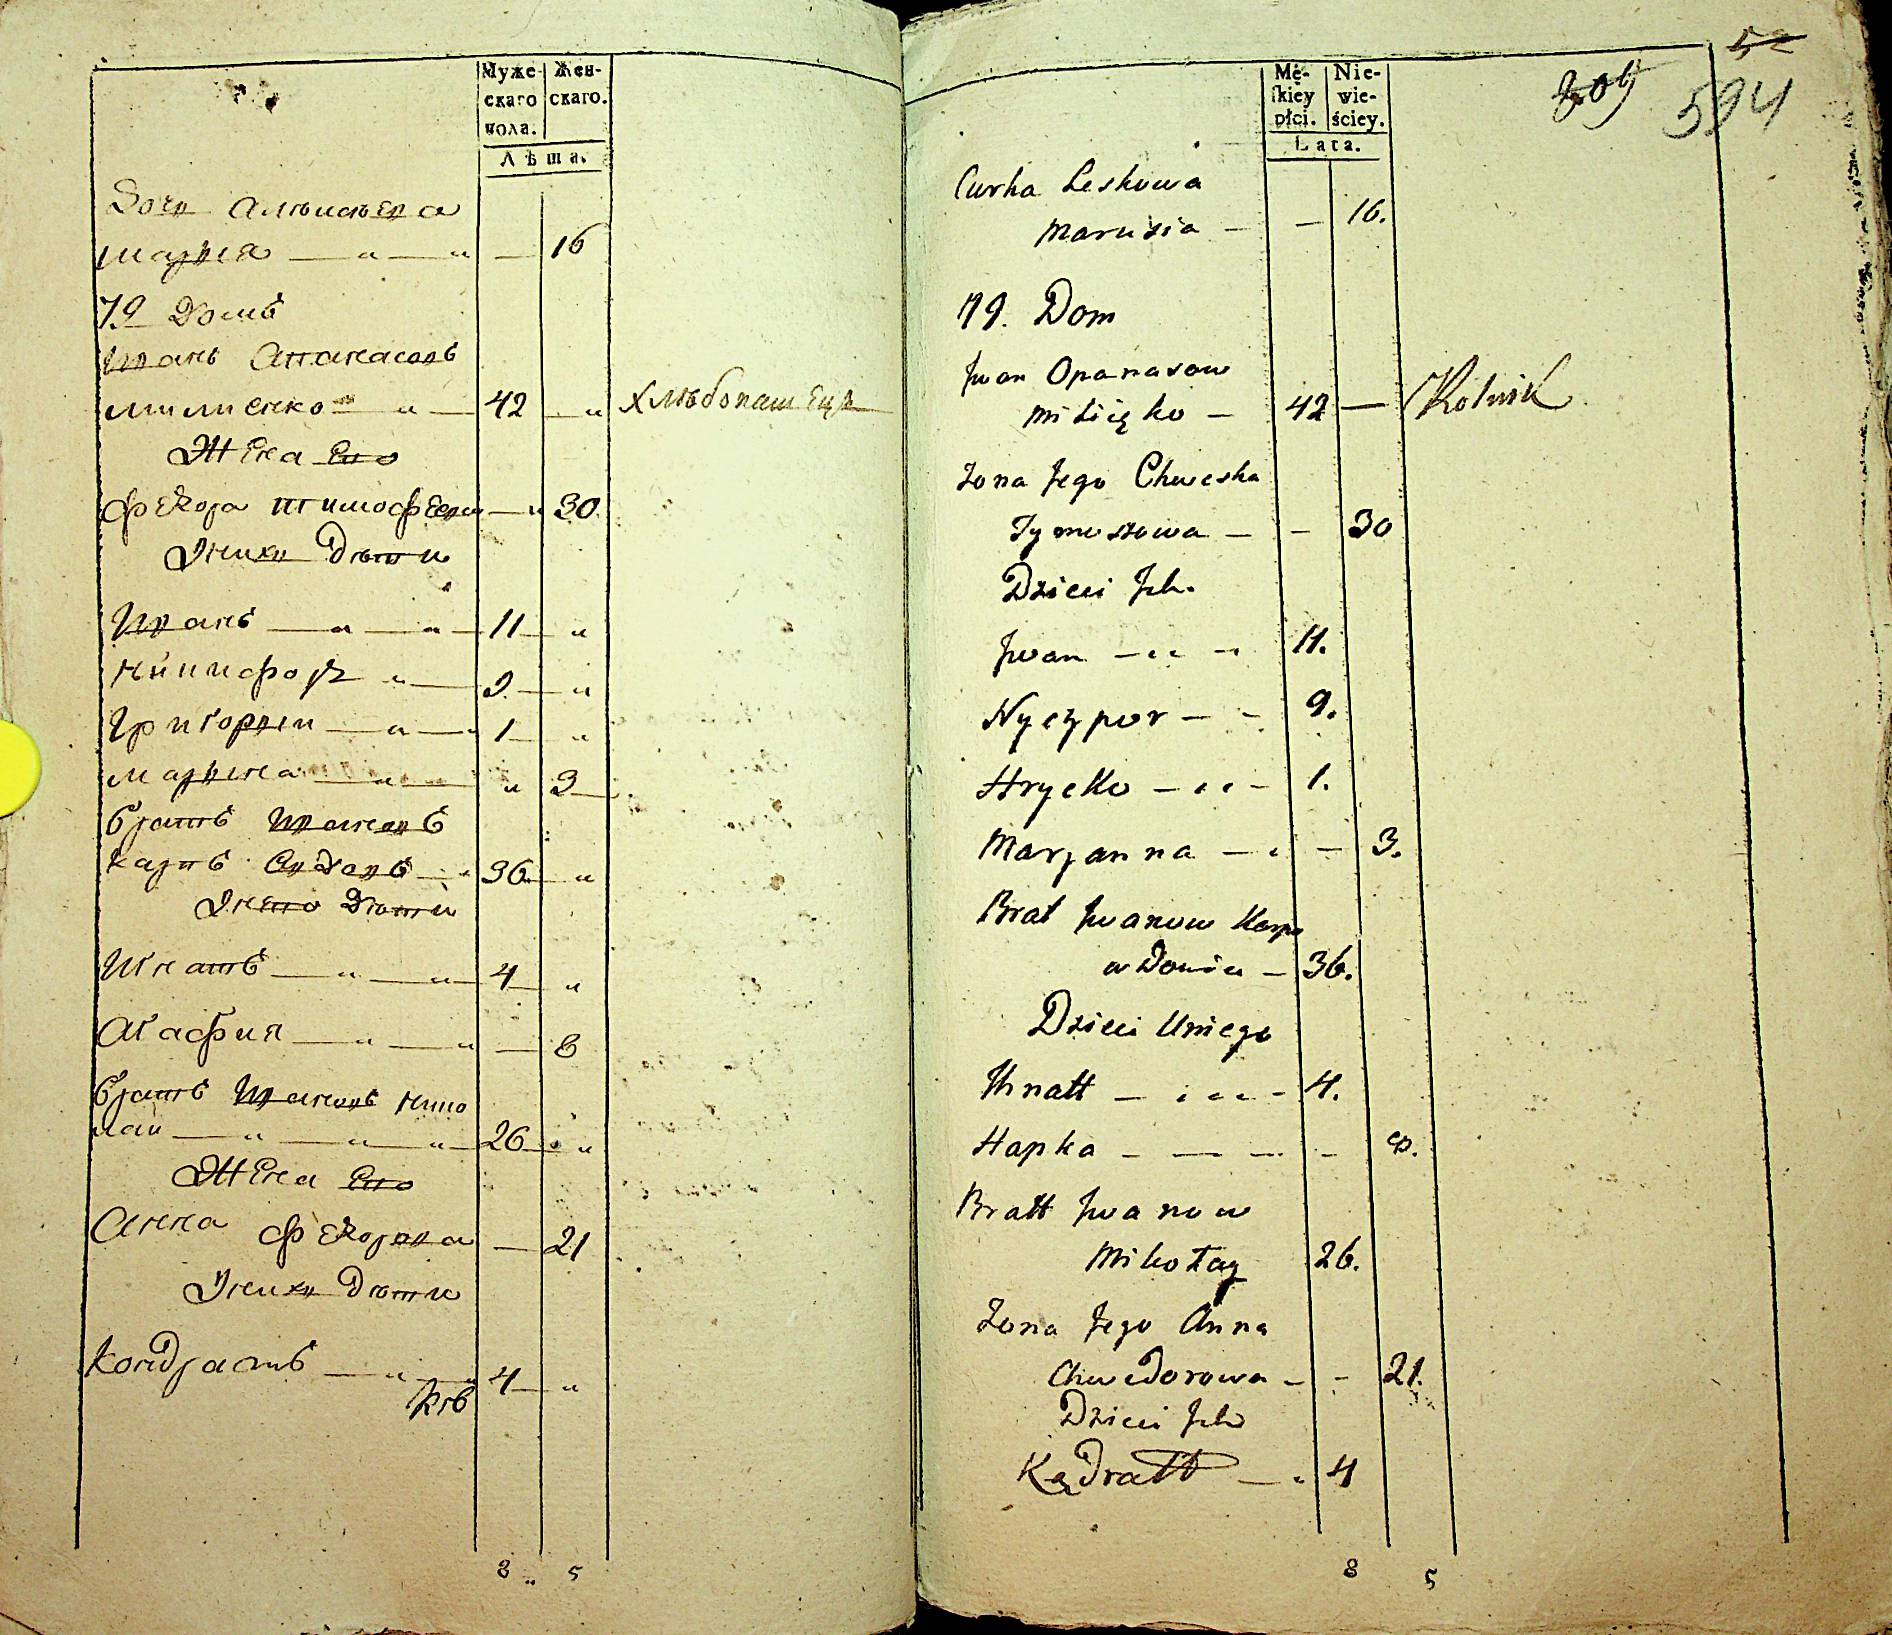 Муже- Жен-
скаго скаго.
пола.
Лѣта.
Дочь Алѣксѣева
Марья — „ — „ — 16
79 Домъ
Иванъ Апанасовъ
Милиенко — „ — 42 — „ Хлѣбопашецъ
Жена Его
Федора Тимофеева — „ 30
У нихъ Дѣти
Иванъ — „ — „ — 11 — „
Никифоръ „ — 9 — „
Григорий — „ — 1 — „
Марина — „ — „ 3
Братъ Ивановъ
Карпъ Вдовъ — „ 36 — „
У него Дѣти
Игнатъ — „ — „ — 4 — „
Агафия — „ — „ — 8
Братъ Ивановъ Нико
лай — „ — „ — „ — 26 — „
Жена Его
Анна Федорова — 21
У нихъ Дѣти
Кондратъ — „ — „ 4 — „
8 „ 5
52
594
Mę- Nie-
skiey wie-
płci. ściey.
Lata.
Curka Leskowa
Marusia — — 16.
79. Dom
Jwan Opanasow
Milięko — 42 — Rolnik
Żona Jego Chweska
Tymoszowa — — 30
Dzieci Jch.
Jwan — „ — 11.
Nyczypor — — 9.
Hrycko — „ — 1.
Maryanna — „ — 3.
Brat Jwanow Karpo
wdowiec — 36.
Dzieci Uniego
Ihnatt — „ „ — 4.
Hapka — — — — 8.
Bratt Jwanow
Mikołay 26.
Żona Jego Anna
Chwedorowa — — 21.
Dzieci Jch
Kądratt — „ 4
8 5